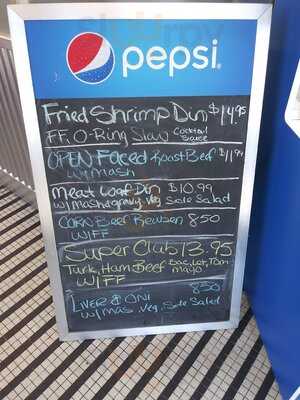 pepsi
Fried Shrimp Din $14.95
FF. O-Ring Slaw Cocktail Sauce
OPEN FACED Roast Beef $11.99
w/Mash
Meat Loaf Din $10.99
w/Mash+gravy, Veg Sole Salad
CORN Beef Reuben 8.50
w/FF
Super Club 13.95
Turk, Ham Beef Bac, Let, Tom mayo
w/FF
8.50
LIVER & ONI
w/ mas. Veg, Sole Salad